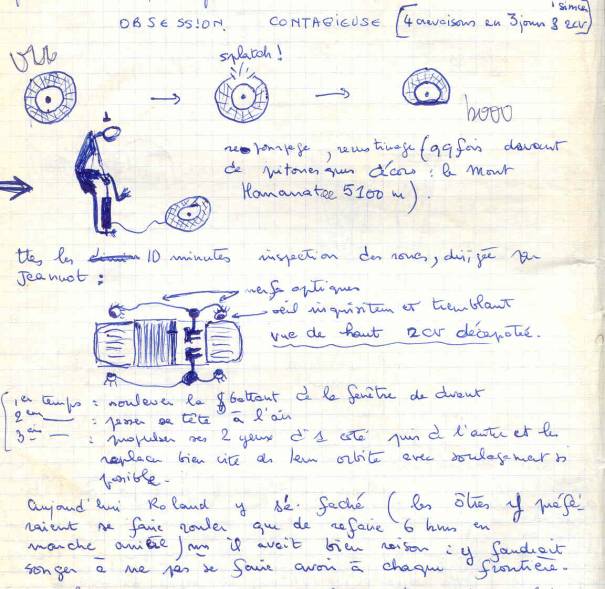 OBSESSION. CONTAGIEUSE (4 crevaisons en 3 jours § 2CV
vuu
splatch !
booo
regonpage, recustinage (99 fois devant
de pitoresques décors : le mont
5100 m).
ttes les 10 minutes inspection des roues, dirigée par
Jeannot :
nerfs optiques
oeil inquisiteur et tremblant
vue de haut 2CV décapotée.
1er temps : soulever le battant de la fenêtre de devant
2em — : passer sa tête à l'air
3em — : propulser ses 2 yeux d'1 coté puis d l'autre et les
replacer bien vite ds leur orbite avec soulagement si
possible.
Aujourd'hui Roland y sé faché (les ôtres y préfé-
raient se faire rouler que de refaire 6 kms en
marche arrière) mes il avait bien raison : y faudrait
songer à ne pas se faire avoir à chaque frontière.